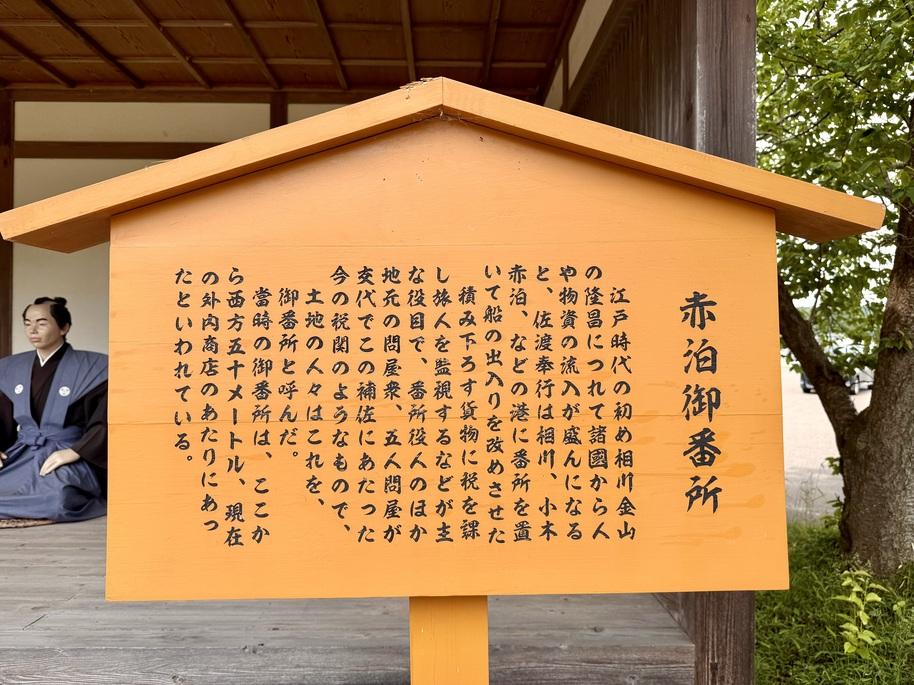 赤泊御番所
江戸時代の初め相川金山
の隆昌につれて諸國から人
や物資の流入が盛んになる
と、佐渡奉行は相川、小木
赤泊、などの港に番所を置
いて船の出入りを改めさせた
積み下ろす貨物に税を課
し旅人を監視するなどが主
な役目で、番所役人のほか
地元の問屋衆、五人問屋が
交代でこの補佐にあたった
今の税関のようなもので、
土地の人々はこれを、
御番所と呼んだ。
當時の御番所は、ここか
ら西方五十メートル、現在
の外内商店のあたりにあっ
たといわれている。